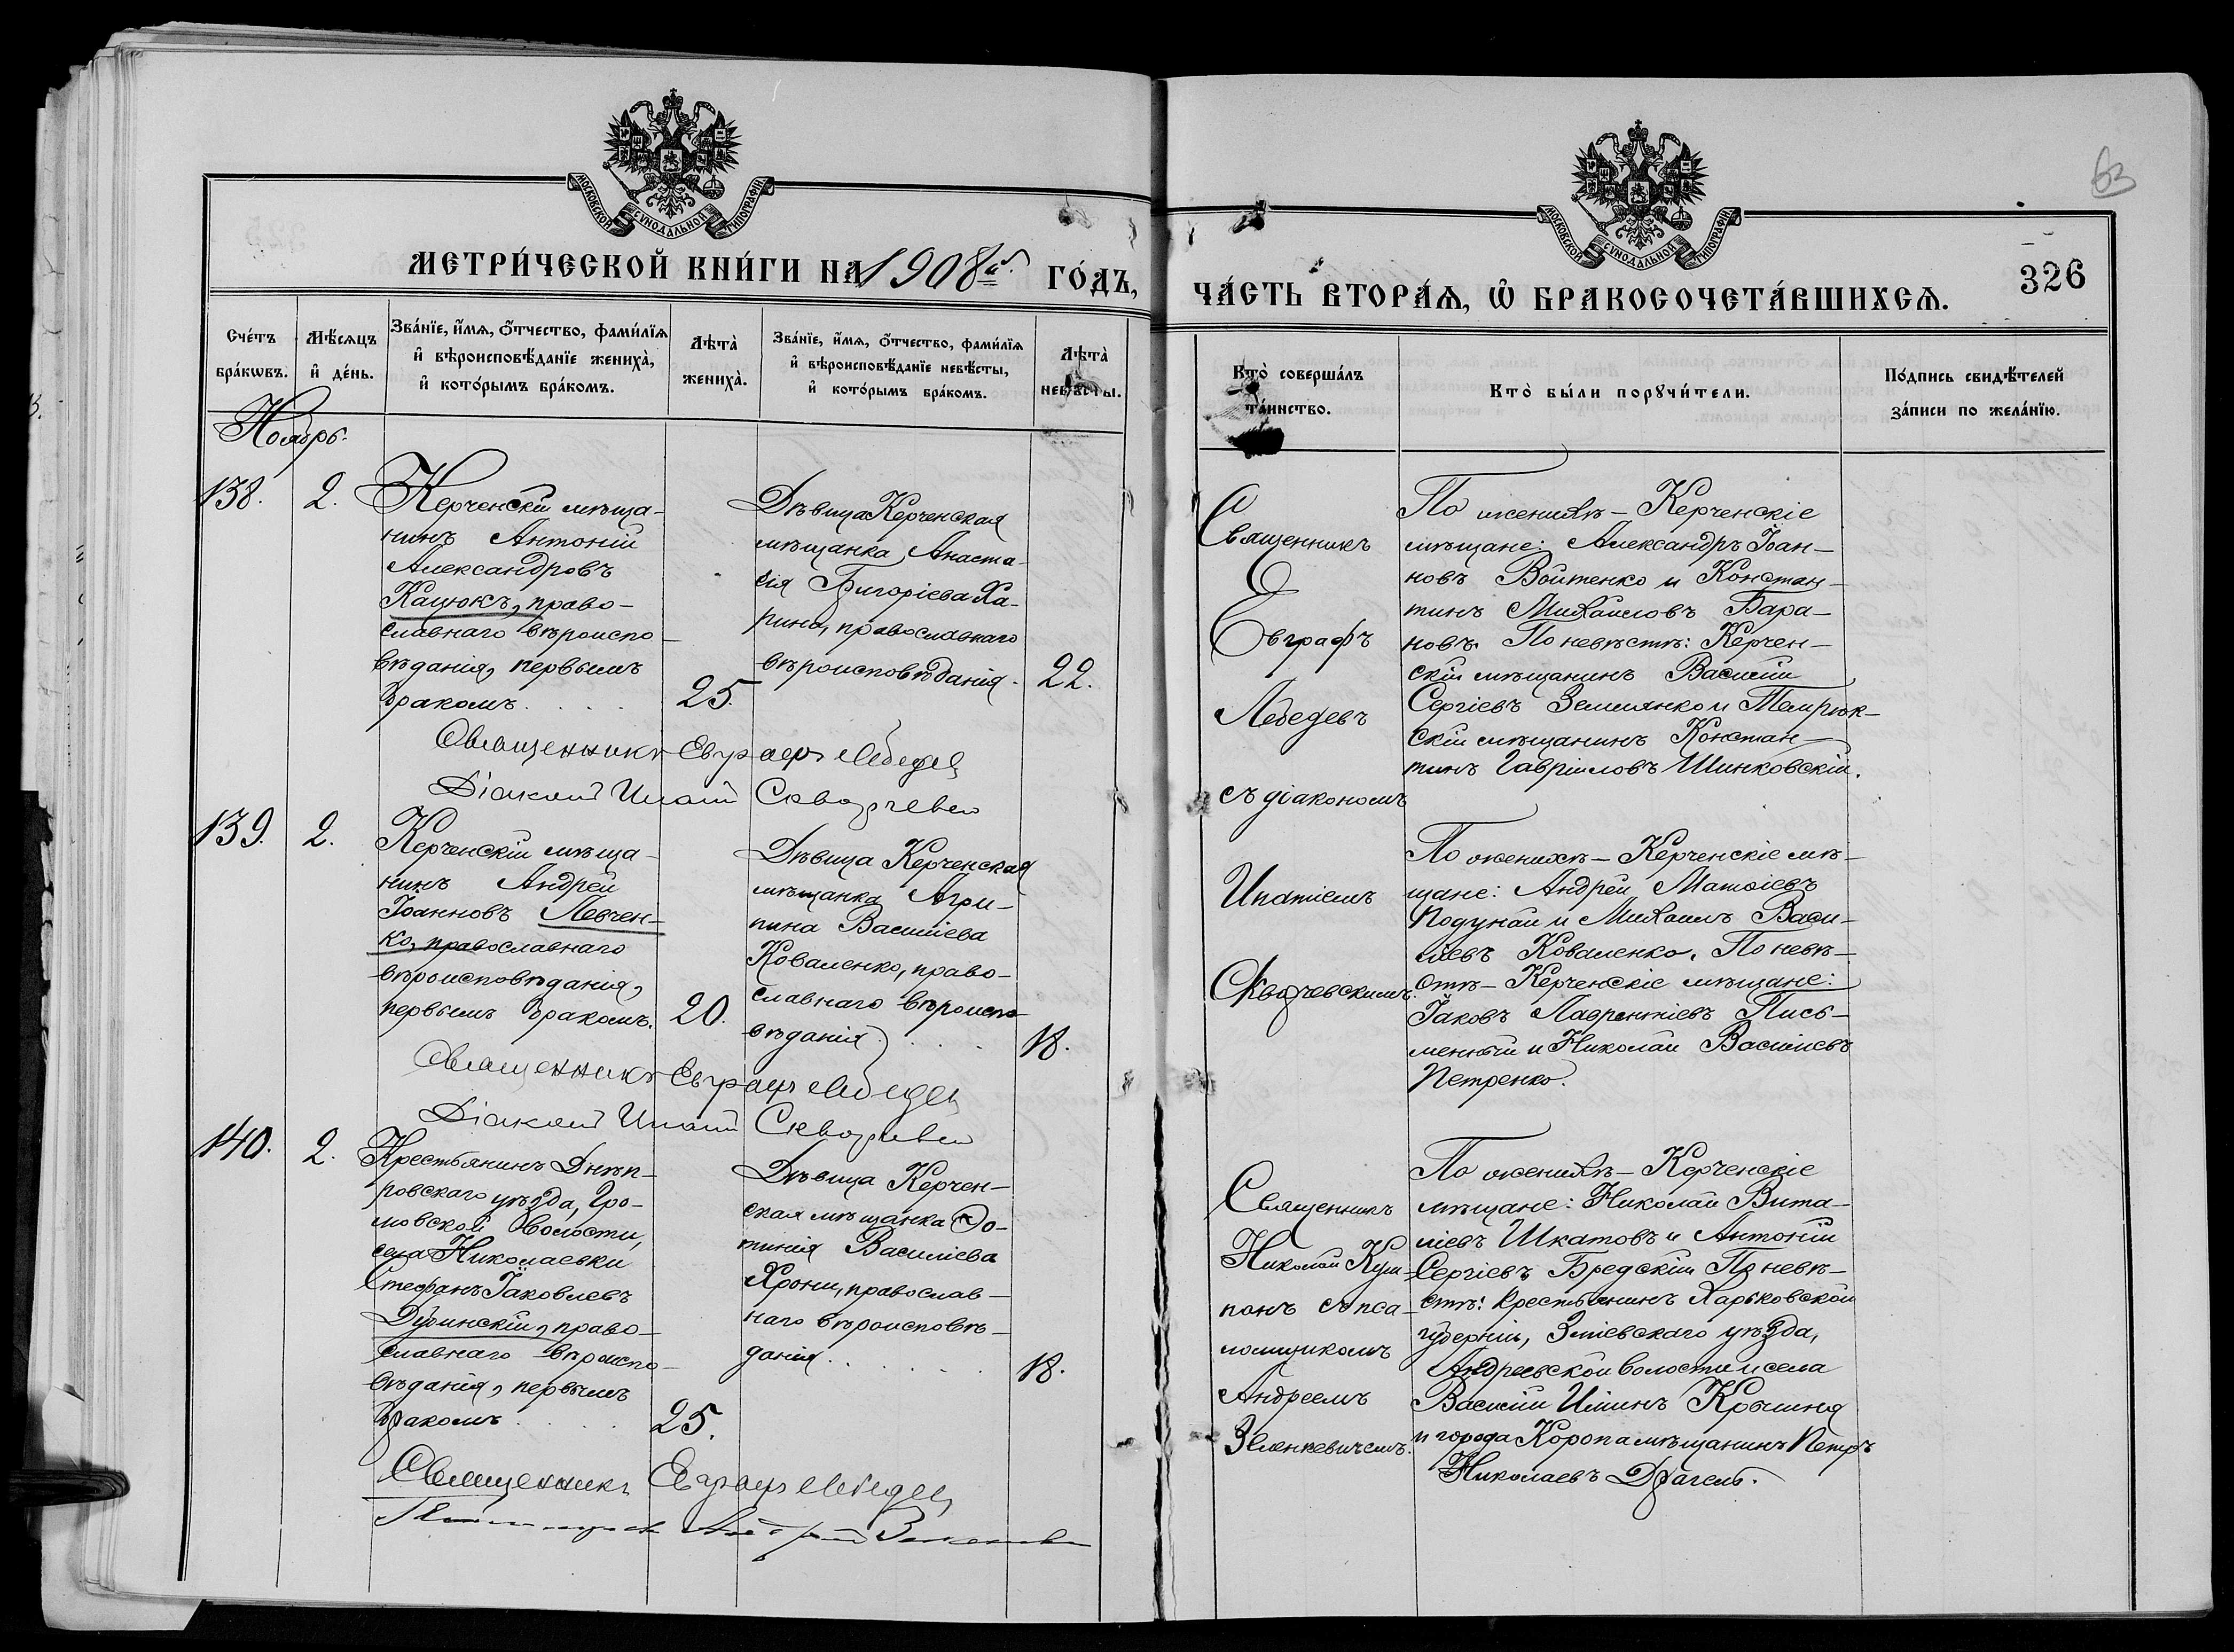 МОСКОВСКОЙ СѴНОДАЛЬНОЙ ТИПОГРАФІИ
МЕТРИ́ЧЕСКОЙ КНИ́ГИ НА 1908й ГО́ДЪ,
Сче́тъ бра́кѡвъ.
Мѣ́сяцъ и҆ де́нь.
Зва́нїе, и҆́мѧ, ѻ҆́тчество, фами́лїѧ
и҆ вѣроисповѣ́данїе жениха̀,
и҆ кото́рымъ бра́комъ.
Лѣта̀ жениха̀.
Зва́нїе, и҆́мѧ, ѻ҆́тчество, фами́лїѧ
и҆ вѣроисповѣ́данїе невѣ́сты,
и҆ кото́рымъ бра́комъ.
Лѣта̀ невѣ́сты.
Ноябрь.
138.
2.
Керченскій мѣща-
нинъ Антоній
Александровъ
Кацюкъ, право-
славнаго вѣроиспо-
вѣданія, первымъ
бракомъ....
25.
Дѣвица Керченская
мѣщанка Анаста-
сія Григоріева Ха-
рина, православнаго
вѣроисповѣданія.
22.
Священникъ Евграфъ Лебедев
Діаконъ Ипатій
139.
2.
Керченскій мѣща-
нинъ Андрей
Іоанновъ Левчен-
ко, православнаго
вѣроисповѣданія,
первымъ бракомъ.
20.
Дѣвица Керченская
мѣщанка Агри-
пина Василіева
Коваленко, право-
славнаго вѣроиспо-
вѣданія....
18.
Священникъ Евграфъ Лебедев
Діаконъ Ипатій
140.
2.
Крестьянинъ Днѣп-
ровскаго уѣзда, Гро-
мовской волости,
села Николаевки
Стефанъ Іаковлевъ
Дубинскій, право-
славнаго вѣроиспо-
вѣданія, первымъ
бракомъ....
25.
Дѣвица Керчен-
ская мѣщанка Фо-
тинія Василіева
Хрони, православ-
наго вѣроисповѣ-
данія......
18.
Священникъ Евграфъ Лебедев
63
МОСКОВСКОЙ СѴНОДАЛЬНОЙ ТИПОГРАФІИ
ЧА́СТЬ ВТОРА́Ѧ, Ѽ БРАКОСОЧЕТА́ВШИХСѦ.
326
Кто̀ соверша́лъ та́инство.
Кто̀ бы́ли порꙋчи́тели.
По́дпись свидѣ́телей за́писи по жела́нїю.
Священникъ
Евграфъ
Лебедевъ
съ діакономъ
Ипатіемъ
Скворчевскимъ.
По женихѣ – Керченскіе
мѣщане: Александръ Іоан-
новъ Войтенко и Констан-
тинъ Михаиловъ Бара-
новъ. По невѣстѣ: Керчен-
скій мѣщанинъ Василій
Сергіевъ Землянко и Темрюк-
скій мѣщанинъ Констан-
тинъ Гавріиловъ Шинковскій.
По женихѣ – Керченскіе мѣ-
щане: Андрей Матѳіевъ
Подунай и Михаилъ Васи-
ліевъ Коваленко. По невѣ-
стѣ – Керченскіе мѣщане:
Іаковъ Лаврентіевъ Пись-
менный и Николай Василіевъ
Петренко.
Священникъ
Николай Куш-
понъ съ пса-
ломщикомъ
Андреемъ
Зеленкевичемъ.
По женихѣ – Керченскіе
мѣщане: Николай Вита-
ліевъ Шкатовъ и Антоній
Сергіевъ Бредскій. По невѣ-
стѣ: крестьянинъ Харьковской
губерніи, Зміевскаго уѣзда,
Андреевской волости и села
Василій Иліинъ
и города Коропа мѣщанинъ Петръ
Николаевъ Драгель.